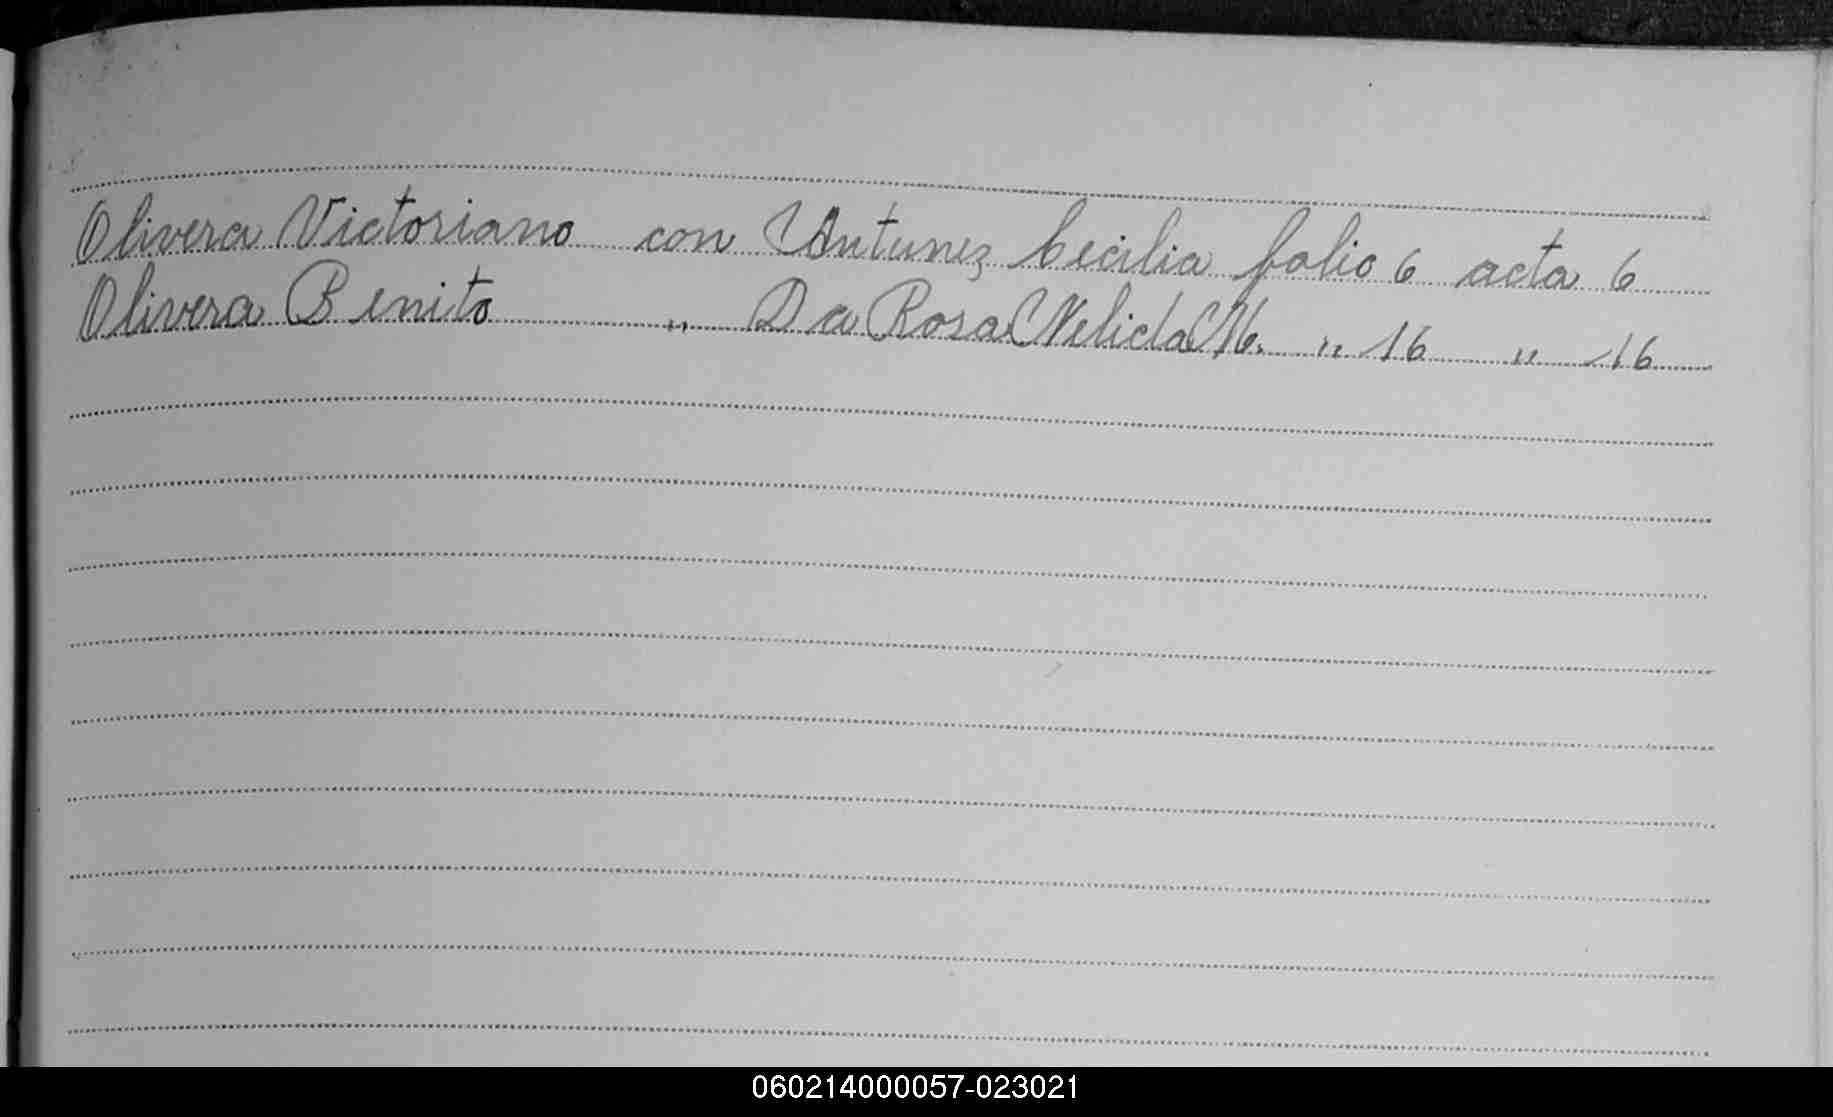 Olivera Victoriano con Antunez Cecilia folio 6 acta 6
Olivera Benito " Da Rosa Nelida M. " 16 " 16
060214000057-023021